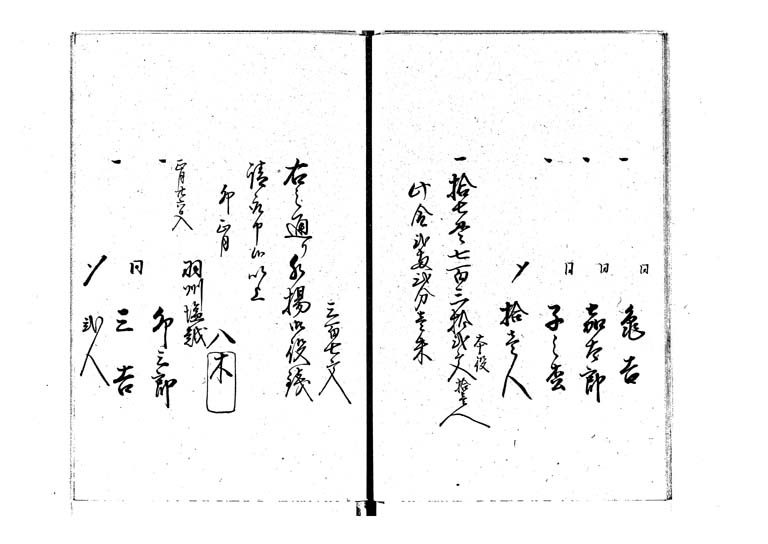 一 同 亀吉
一 同 嘉太郎
一 同 子之吉
〆 拾壱人
一 拾七貫七百二拾弐文 本役 拾壱人
此金弐両弐分壱朱
三百七文
右之通り水揚御役銭
請取申候以上
卯 正月
八木
羽州塩越
正月廿六日入
一 卯三郎
一 同 三吉
〆 弐人